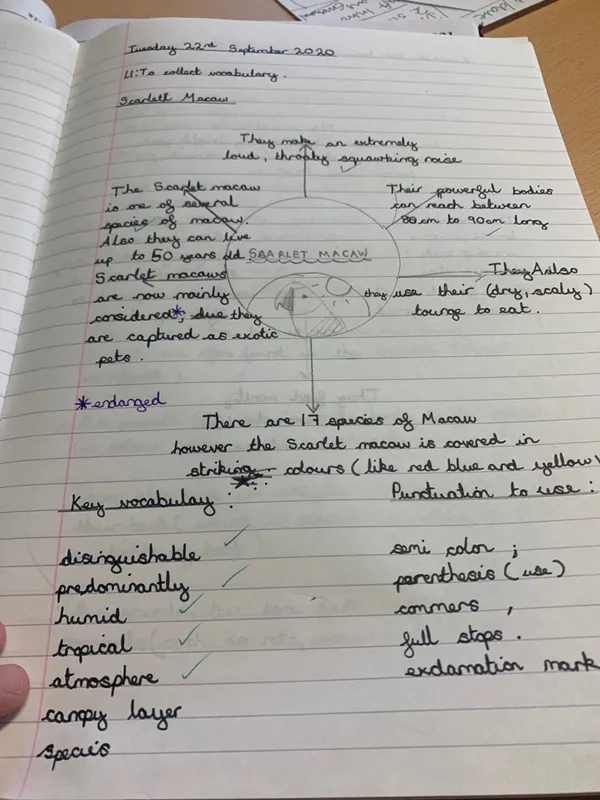 Tuesday 22nd September 2020
LI: To collect vocabulary.
Scarlett Macaw
They make an extremely
loud, throaty squawking noise
The Scarlet macaw
is one of several
species of macaw.
Also they can live
up to 50 years old
Scarlet macaws
are now mainly
considered*, due they
are captured as exotic
pets.
*endanged
SCARLET MACAW
Their powerful bodies
can reach between
80cm to 90cm long
They Anlso
they use their (dry, scaly)
tounge to eat.
There are 17 species of Macaw
however the Scarlet macaw is covered in
striking colours (like red blue and yellow)
Key vocabulay :
disinguishable
predominantly
humid
tropical
atmosphere
canopy layer
species
Punctuation to use :
semi color ;
parenthesis (use)
commers ,
full stops .
exclamation mark